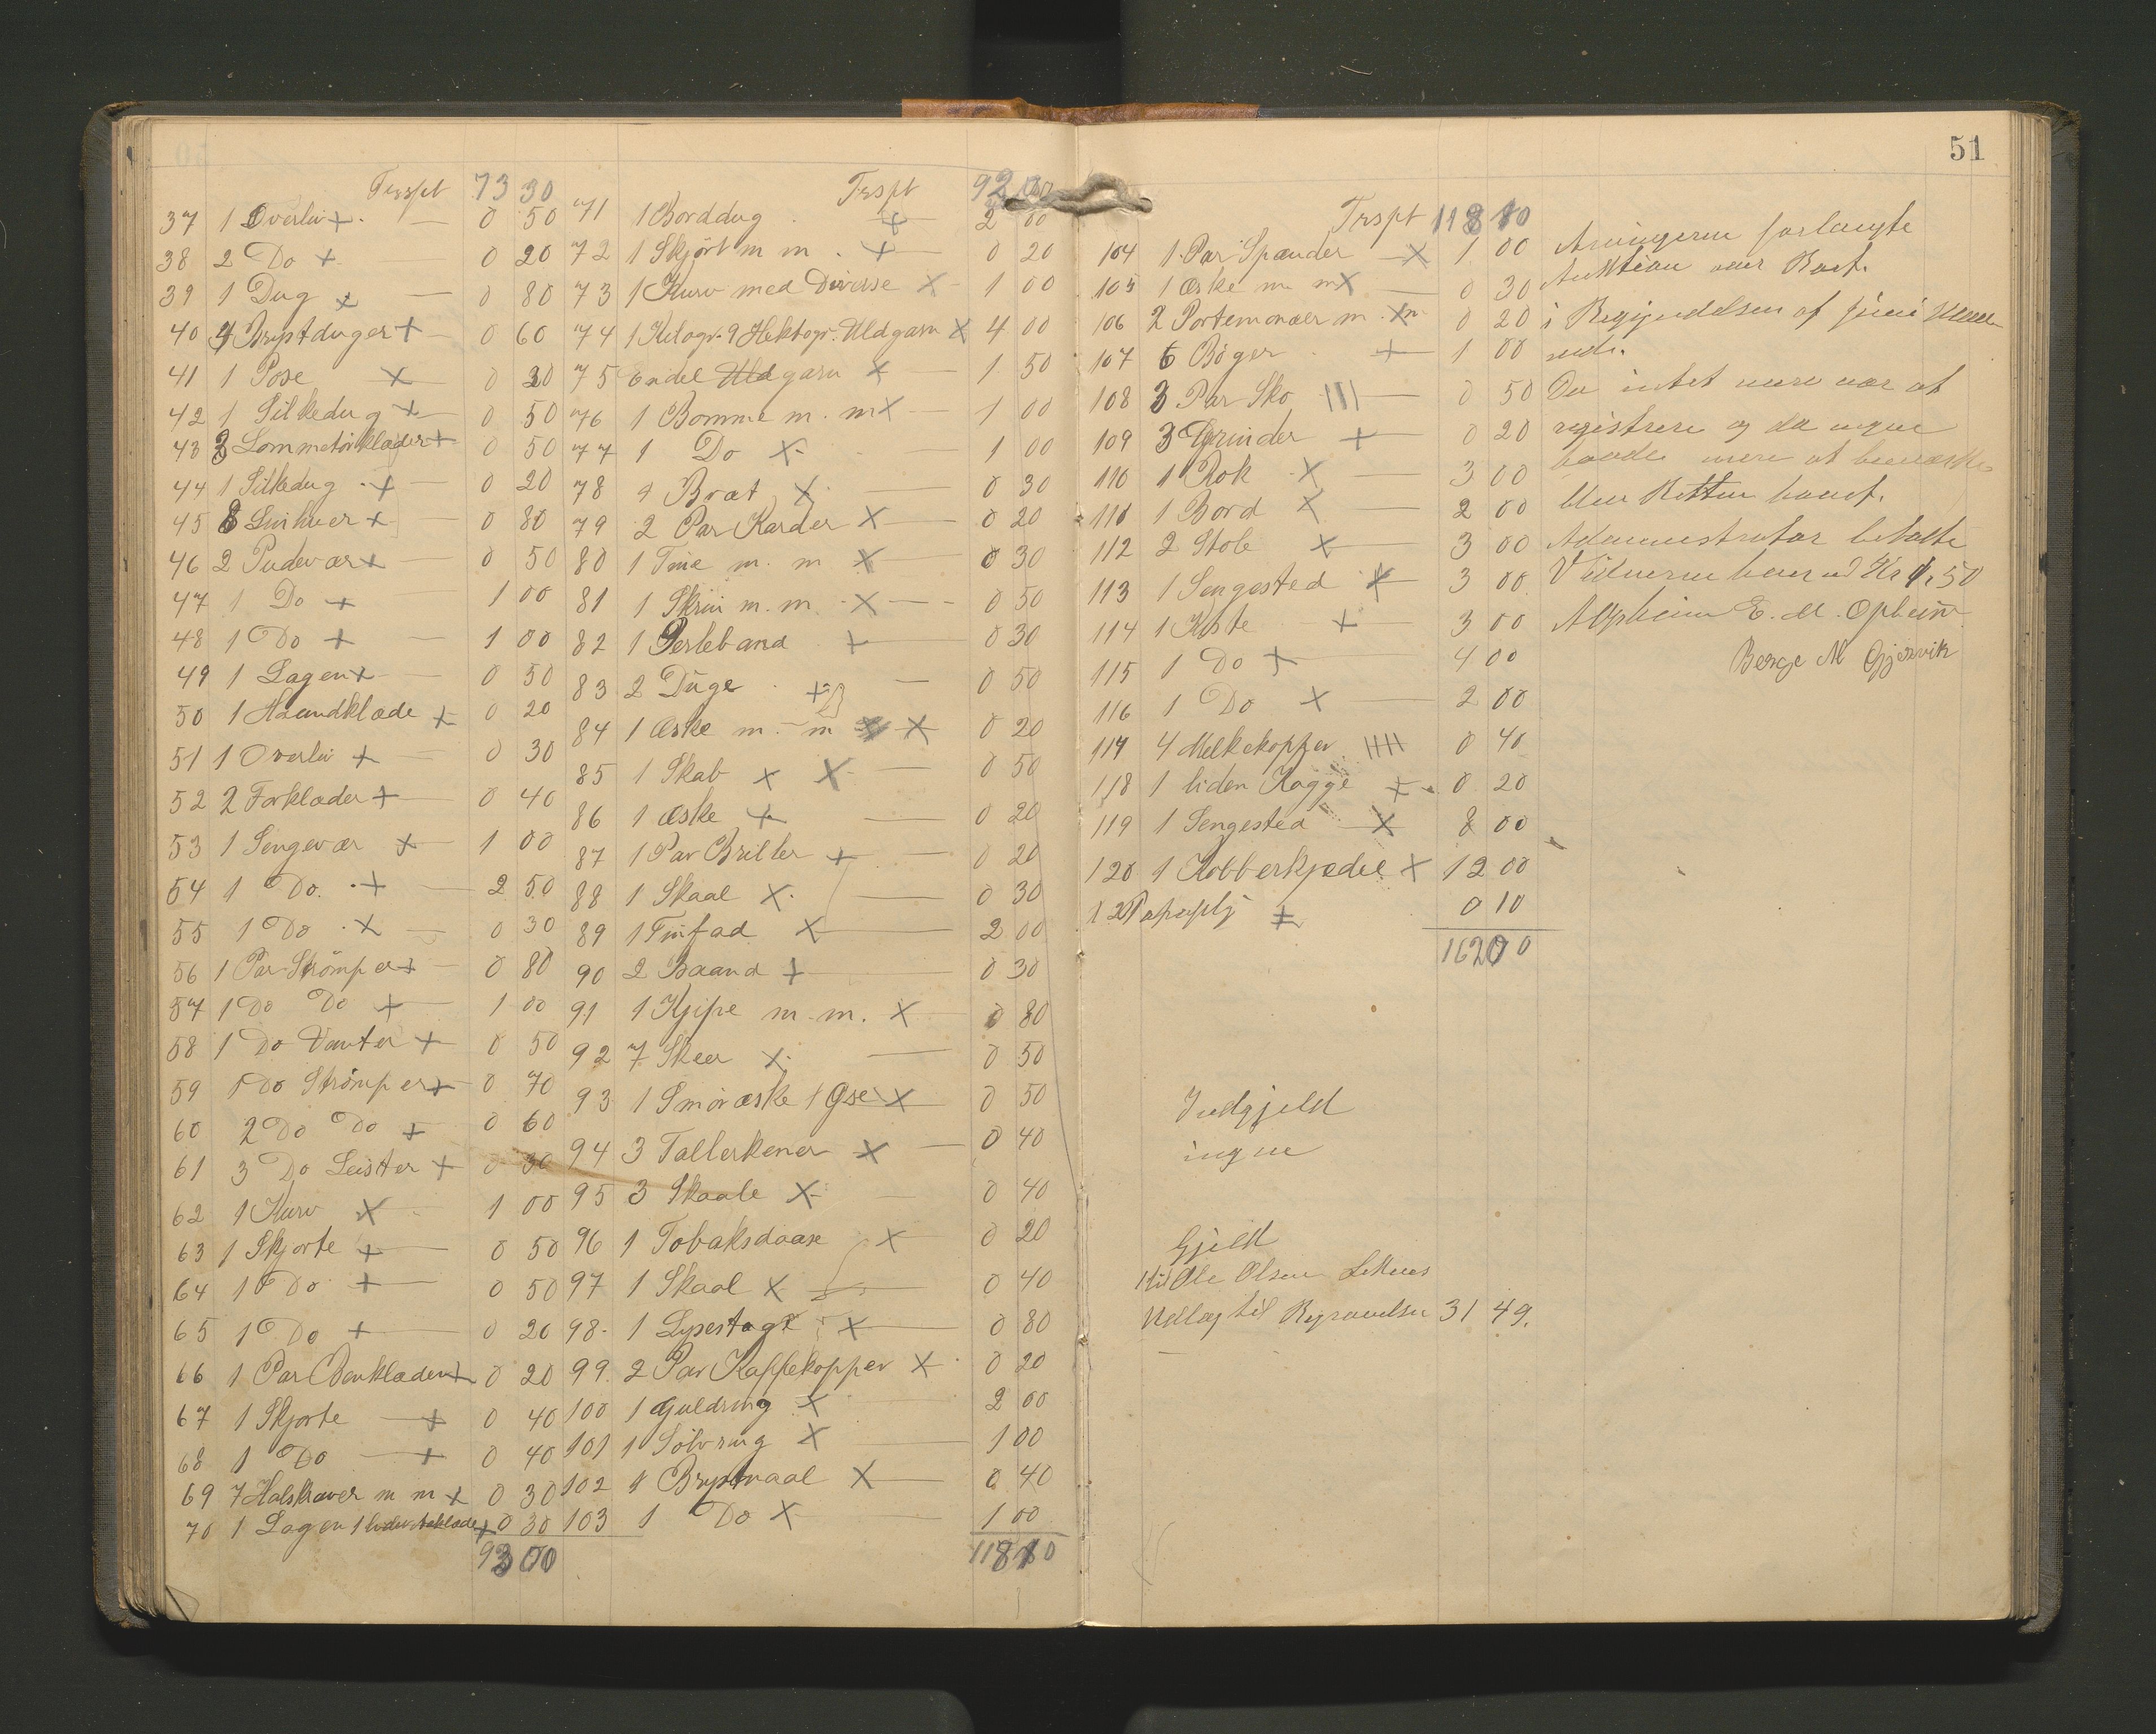 Trspt 73 30
37 1 Overliv + 0 50
38 2 Do + 0 20
39 1 Dug + 0 80
40 4 Brystduger + 0 60
41 1 Pose X 0 30
42 1 Silkedug + 0 50
43 3 Lommetörklæder + 0 50
44 1 Silkedug + 0 20
45 8 Linhuer + 0 80
46 2 Pudevær + 0 50
47 1 Do + 1 00
48 1 Do + 1 00
49 1 Lagen + 0 50
50 1 Haandklæde + 0 20
51 1 Overliv + 0 30
52 2 Forklæder + 0 40
53 1 Sengevær + 1 00
54 1 Do. + 2 50
55 1 Do X 0 30
56 1 Par Strömper + 0 80
57 1 Do Do + 1 00
58 1 Do Vanter + 0 50
59 1 Do Strömper + 0 70
60 2 Do Do + 0 60
61 3 Do Leister + 0 30
62 1 Kurv X 1 00
63 1 Skjorte + 0 50
64 1 Do + 0 50
65 1 Do + 0 20
66 1 Par Benklæder + 0 20
67 1 Skjorte + 0 40
68 1 Do + 0 40
69 7 Halskraver m m + 0 30
70 1 Lagen 1 + 0 30
93 00
Trspt 92 00
71 1 Borddug + 2 00
72 1 Skjört m m + 0 20
73 1 Kurv med Diverse X 1 00
74 1 Kilogr. 9 Hektogr. Uldgarn X 4 00
75 Endel Uldgarn X 1 50
76 1 Bomme m. m X 1 00
77 1 Do X 1 00
78 9 Bræt X 0 30
79 2 Par Karder X 0 20
80 1 Tine m. m X 0 30
81 1 Skrin m. m. X 0 50
82 1 Perleband + 0 30
83 2 Duge + 0 50
84 1 Æske m. m X 0 20
85 1 Skab X X 0 50
86 1 Æske + 0 20
87 1 Par Briller + 0 20
88 1 Skaal X 0 30
89 1 Tinfad X 2 00
90 2 Baand + 0 30
91 1 Kjipe m. m. X 0 80
92 7 Skeer X 0 50
93 1 Smöræske 1 Øse X 0 50
94 3 Tallerkener X 0 40
95 3 Skaale X 0 40
96 1 Tobaksdaase X 0 20
97 1 Skaal X 0 40
98. 1 Lysestage X 0 80
99. 2 Par Kaffekopper X 0 20
100 1 Guldring X 2 00
101 1 Sölvring X 1 00
102 1 Brystnaal X 0 40
103 1 Do X 1 00
118 10
51
Trspt 118 10
104 1 Par Spænder X 1 00
105 1 Æske m m X 0 30
106 2 Portemonæer m. m X 0 20
107 6 Böger + 1 00
108 3 Par Sko |||| 0 50
109 3 Grinder + 0 20
110 1 Rok X 3 00
111 1 Bord X 2 00
112 2 Stole X 3 00
113 1 Sengested X 3 00
114 1 Kiste + 3 00
115 1 Do + 4 00
116 1 Do X 2 00
117 4 Melkekopper |||| 0 40
118 1 liden Kagge + 0 20
119 1 Sengested X 8 00
120 1 Kobberkjedel X 12 00
0 10
162 00
Arvingerne forlangte
Auktion over Boet
i Begyndelsen af Juni Maa
ned.
Da intet mere var at
registrere og da ingen
havde mere at bemærke
blev Retten hævet.
Administrator betalte
Vidnerne hver ad Kr 1,50
E. M. Opheim
Berge M Gjervik
Indgjeld
ingen
Gjeld
til Ole Olsen
Udlæg til Begravelsen 31 49.